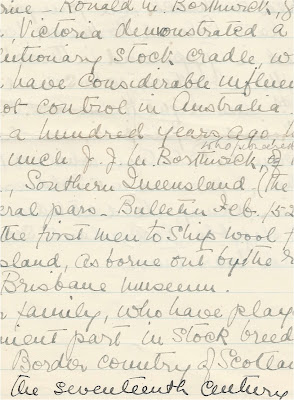 Ronald M. Borthwick, J
Victoria demonstrated a
utionary stock cradle, w
have considerable influen
ot control in Australia
a hundred years ago
much J. J. M. Borthwick, of
, Southern Queensland, (the
eral pars. Bulletin Feb. 15
the first men to ship wool f
sland, as borne out by the
Brisbane museum.
family, who have play
nent part in stock breed
Border country of Scotlan
the seventeenth century